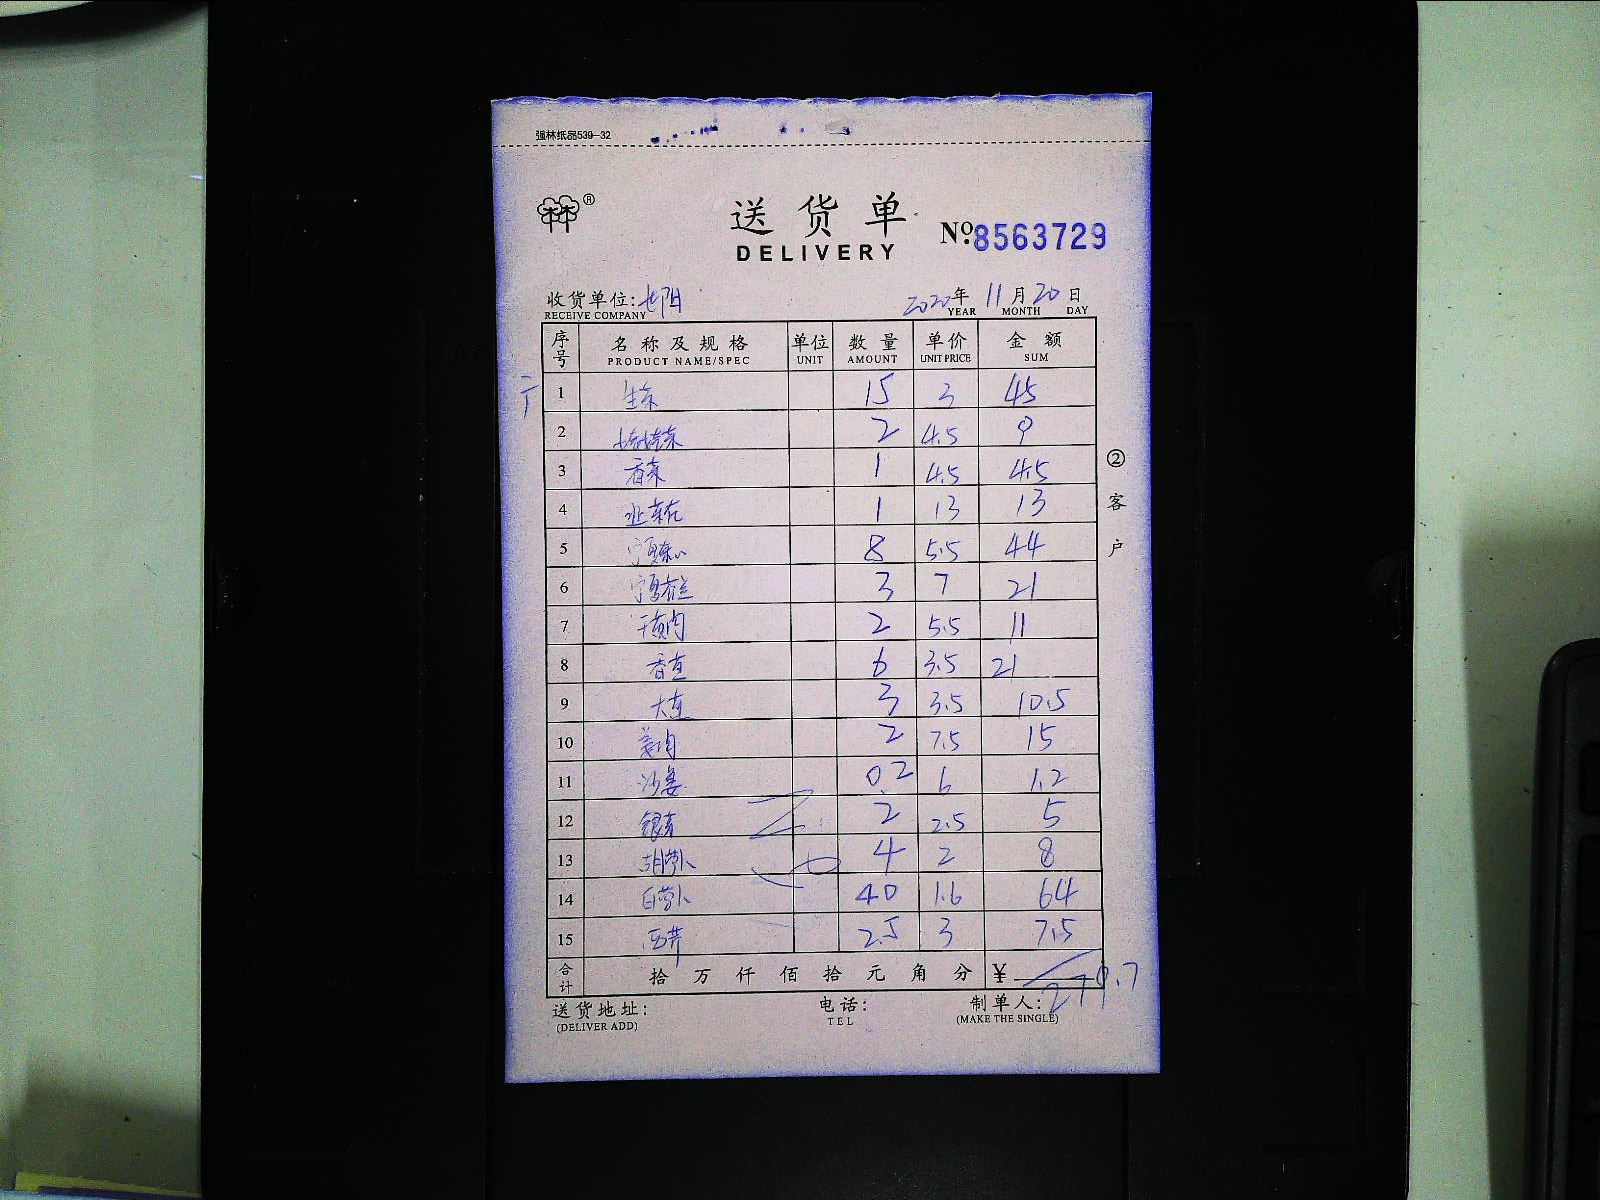 强林纸品539-32
® 送货单
DELIVERY
No.8563729
收货单位: 2020年 11月 20日
RECEIVE COMPANY YEAR MONTH DAY
序号 名称及规格 单位 数量 单价 金额
PRODUCT NAME/SPEC UNIT AMOUNT UNIT PRICE SUM
1 生菜 15 3 45
2 2 4.5 9
3 香菜 1 4.5 4.5
4 1 13 13
5 8 5.5 44
6 3 7 21
7 2 5.5 11
8 6 3.5 21
9 3 3.5 10.5
10 姜肉 2 7.5 15
11 沙姜 0.2 6 1.2
12 2 2.5 5
13 胡萝卜 4 2 8
14 白萝卜 40 1.6 64
15 西芹 2.5 3 7.5
合计 拾 万 仟 佰 拾 元 角 分 ¥ 279.7
送货地址: 电话: 制单人:
(DELIVER ADD) TEL (MAKE THE SINGLE)
② 客户